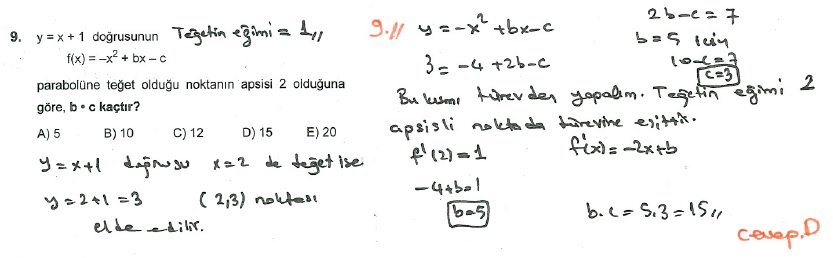 9. y = x + 1 doğrusunun Teğetin eğimi = 1,,
f(x) = –x² + bx – c
parabolüne teğet olduğu noktanın apsisi 2 olduğuna
göre, b • c kaçtır?
A) 5 B) 10 C) 12 D) 15 E) 20
y = x+1 doğrusu x=2 de teğet ise
y = 2+1 = 3 (2,3) noktası
elde edilir.
9.// y = -x² + bx - c
3 = -4 + 2b - c
2b - c = 7
b = 5 için
10 - c = 7
c = 3
Bu kısmı türevden yapalım. Teğetin eğimi 2
apsisli noktada türevine eşittir.
f'(2) = 1 f'(x) = -2x + b
-4 + b = 1
b = 5 b.c = 5.3 = 15,,
cevap.D